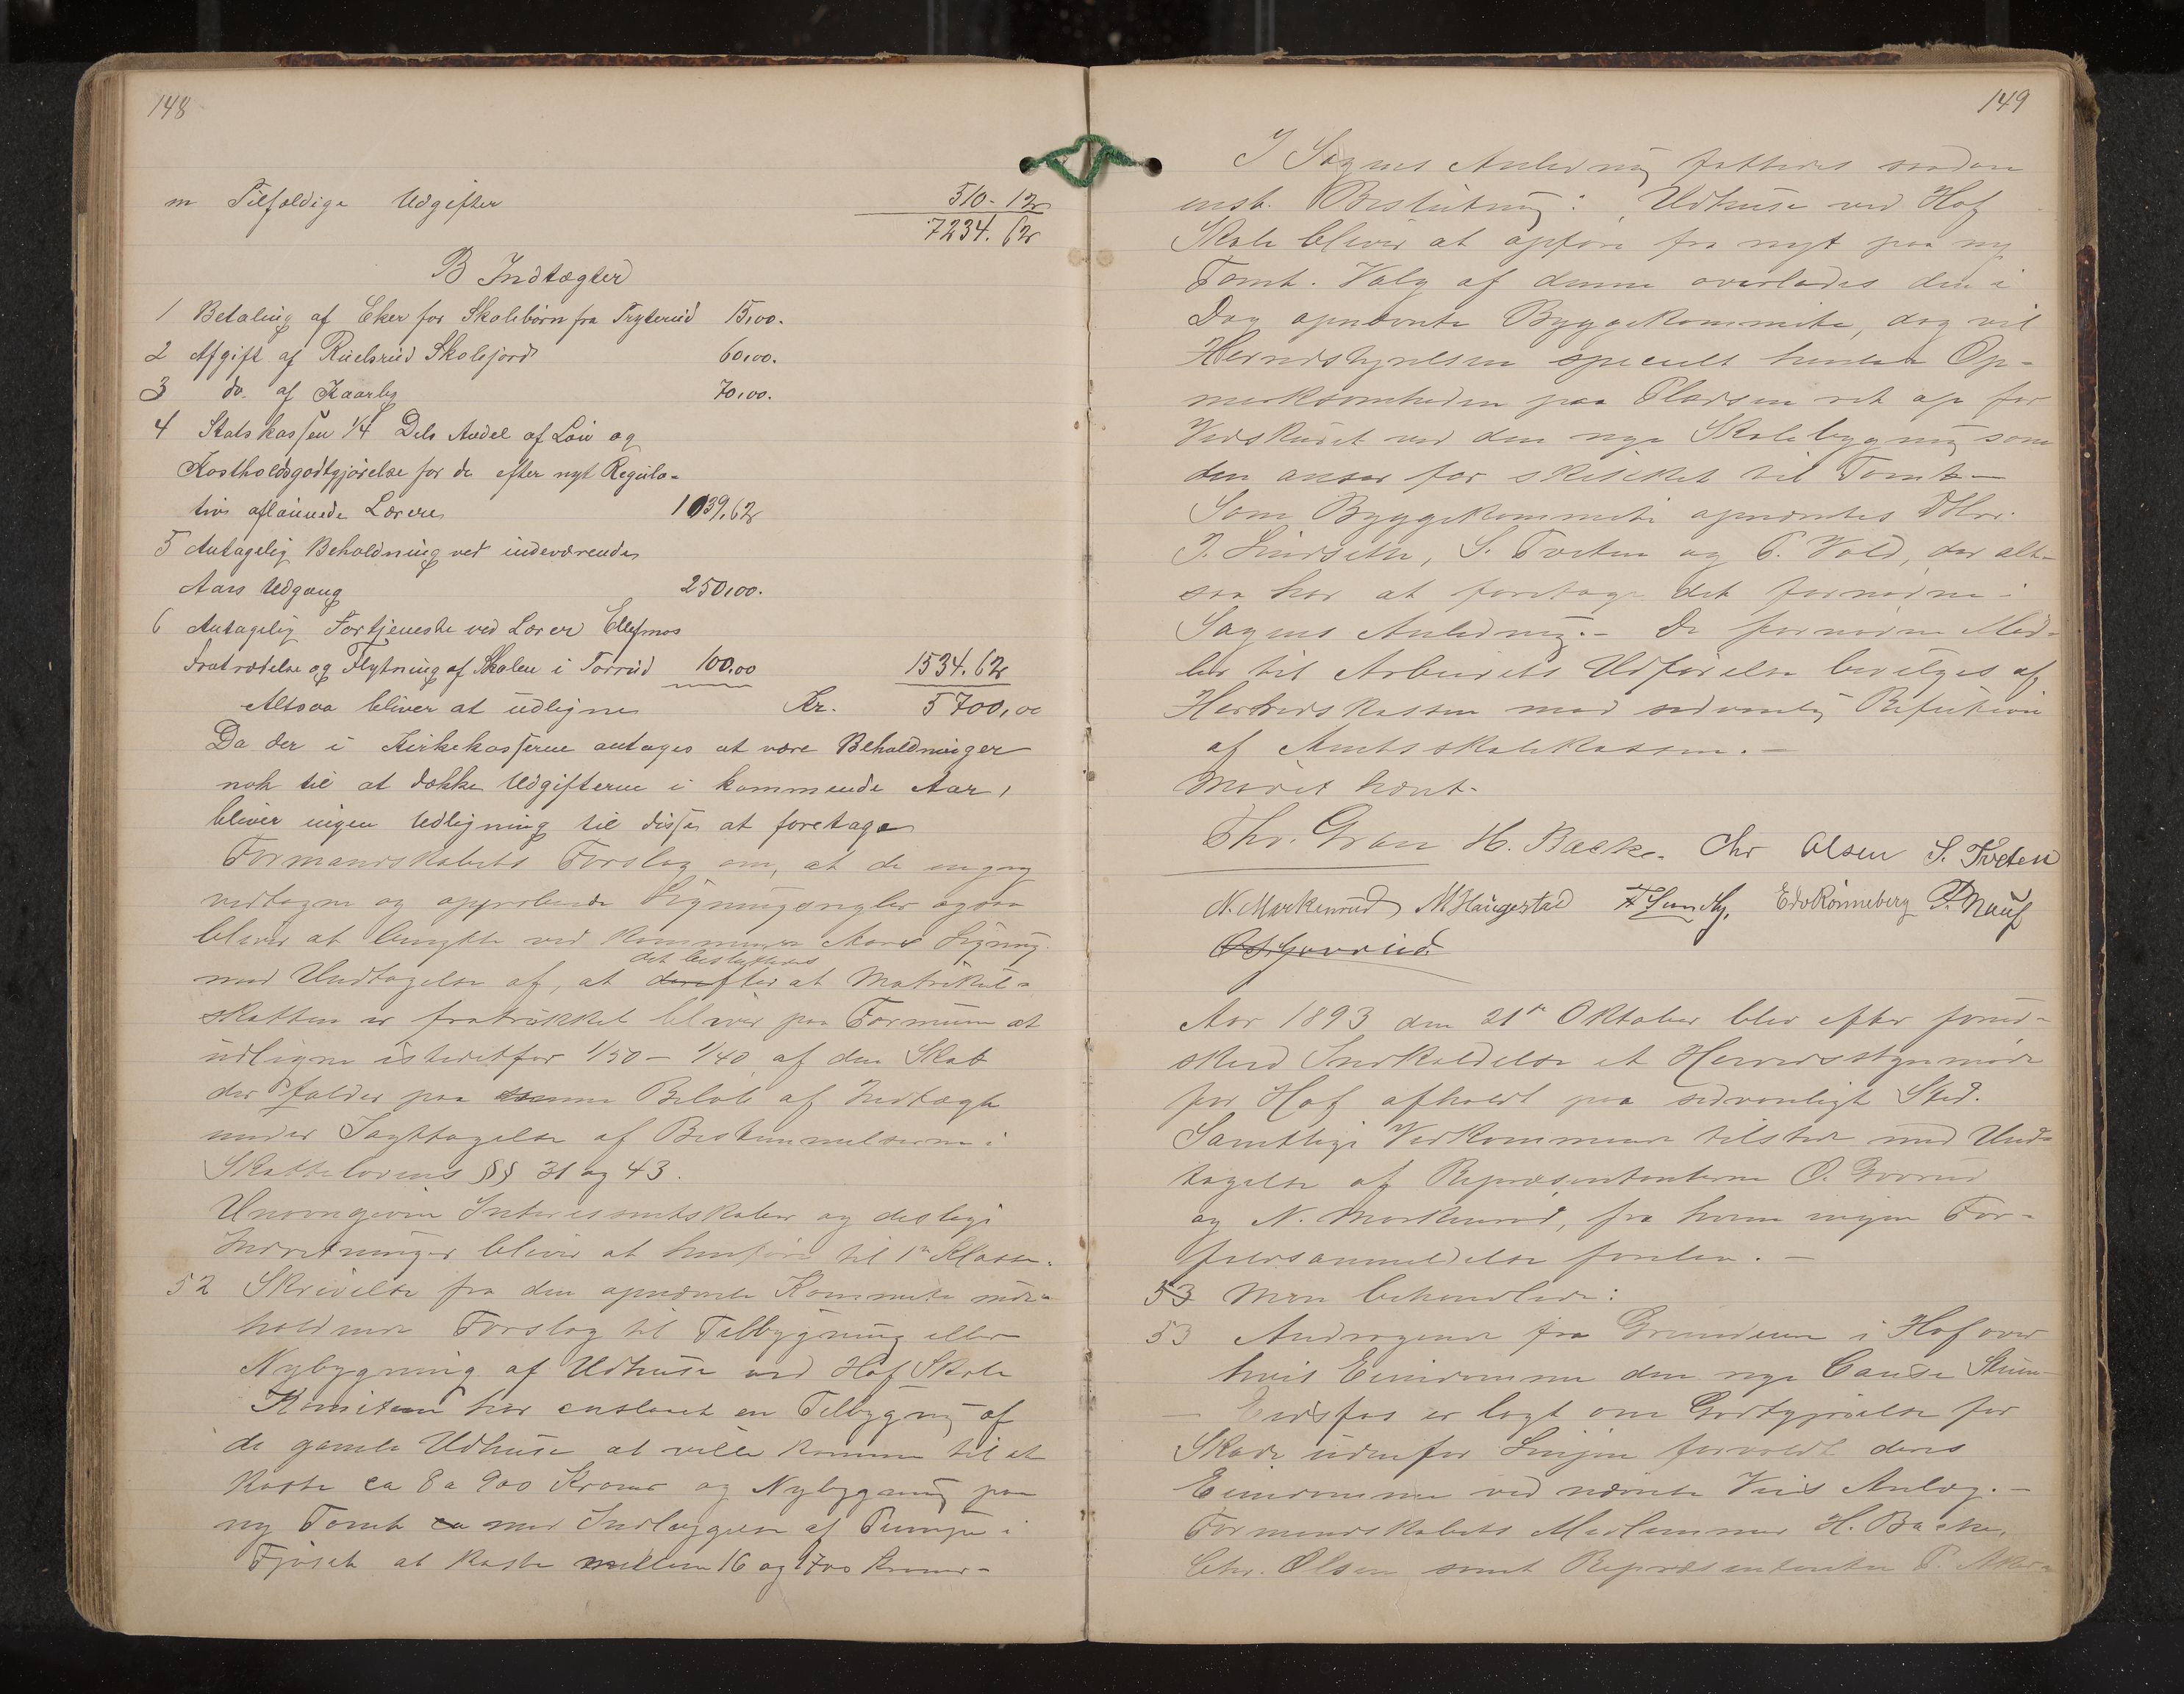 148
m Tilfældige Udgifter 510-12
7234.62
B Indtægter
1 Betaling af Eker for Skolebørn fra Fryterud 15,00.
2 Afgift af Ruelsrud Skolejord 60,00.
3 do. af Kaarby 70,00.
4 Statskassen 1/4 Dels Andel af Løn og
Kostholdsgodtgjørelse for de efter nyt Regula-
tiv aflønnede Lærere 1039,62
5 Antagelig Beholdning ved indeværende
Aars Udgang 250,00.
6 Antagelig Fortjeneste ved Lærer Ellefmos
Fratrædelse og Flytning af Skolen i Torrud 100,00 1534.62
Altsaa bliver at udligne Kr. 5700,00
Da der i Kirkekasserne antages at være Beholdninger
nok til at dække Udgifterne i kommende Aar,
bliver ingen Udligning til disse at foretage
Formandskabets Forslag om, at de engang
vedtagne og approberede Ligningsregler ogsaa
bliver at benytte ved kommende Aars Ligning
det besluttedes
med Undtagelse af, at derefter at Matrikul-
skatten er fratrukket bliver paa Formue at
udligne istedetfor 1/50 - 1/40 af den Skat
der falder paa samme Beløb af Indtægt
under Iagttagelse af Bestemmelserne i
Skattelovens §§ 31 og 43.
Unavngivne Interessentskaber og deslige
Indretninger bliver at henføre til 1ste Klasse.
52 Skrivelse fra den opnævnte Kommite inde-
holdende Forslag til Tilbygning eller
Nybygning af Udhuse ved Hof Skole
Komiteen har anslaaet en Tilbygning af
de gamle Udhuse at ville komme til at
koste ca 8 a 900 Kroner og Nybygning paa
ny Tomt ca med Indlæggelse af Pumpe i
Fjøset at koste mellem 16 og 1700 Kroner-
149
I Sagens Anledning fattedes saadan
enst. Beslutning: Udhuse ved Hof
Skole bliver at opføre fra nyt paa ny
Tomt. Valg af denne overlades den i
Dag opnævnte Byggekommite, dog vil
Herredstyrelsen specielt henlede Op-
merksomheden paa Pladsen ret op for
Vedskuret ved den nye Skolebygning som
den anser for skikket til Tomt-
Som Byggekommite opnævntes DHrr.
J. Lindseth, S. Tveten og P. Vold, der alt-
saa har at foretage det fornødne i
Sagens Anledning.- De fornødne Mid-
ler til Arbeidets Udførelse bevilges af
Herredskassen mod sedvanlig Refusion
af Amtsskolekassen.-
Mødet hævet.
Thv. Gran H. Backe. Chr Olsen S. Tveten
N. Markerud M Haugestad Edv Rønneberg
O. Govrud
Aar 1893 den 21de Oktober blev efter forud-
skeed Indkaldelse et Herredsstyremøde
for Hof afholdt paa sedvanligt Sted.
Samtlige Vedkommende tilstede med Und-
tagelse af Repræsentanterne O. Govrud
og N. Markerud, fra hvem ingen For-
faldsanmeldelse forelaa.-
53 Man behandlede:
53 Andragende fra Grundeiere i Hof over
hvis Eiendomme den nye Causé Steen-
- Eidsfos er lagt om Godtgjørelse for
Skade udenfor Linjen forvoldt deres
Eiendomme ved nævnte Veis Anlæg.-
Formandskabets Medlemmer H. Backe,
Chr. Olsen samt Repræsentanten P. Aker-